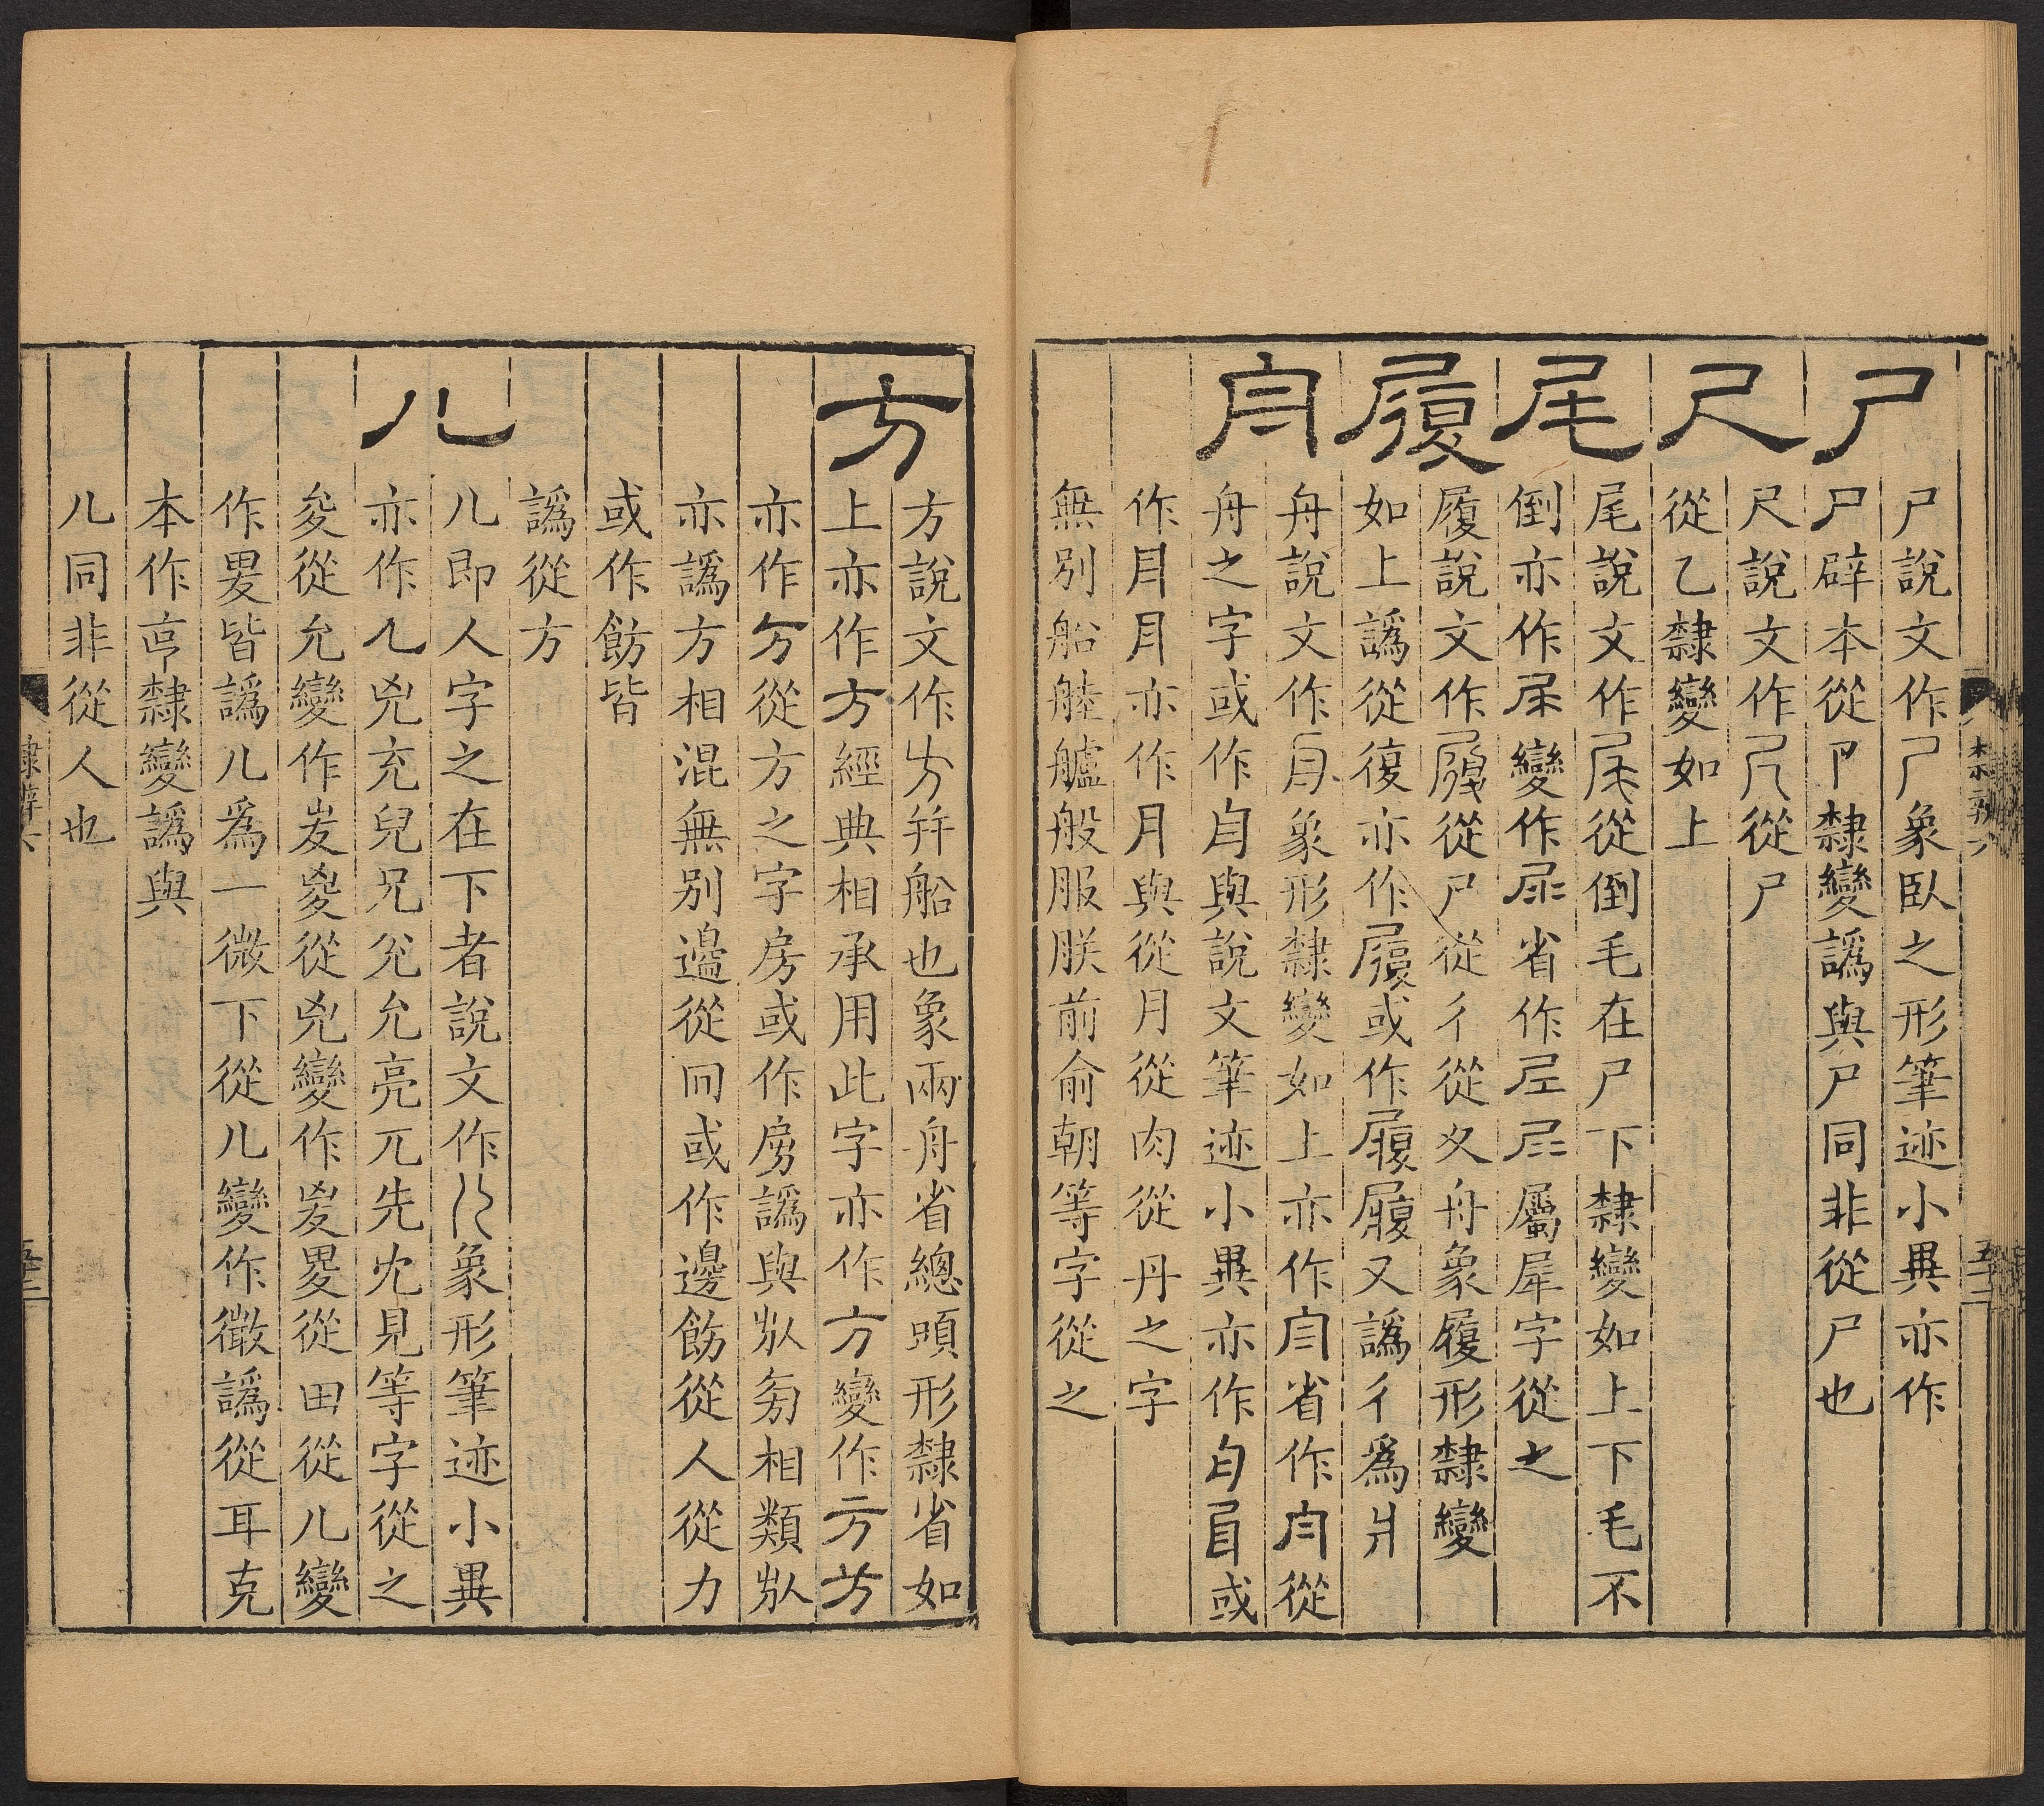 尸
尸說文作尸象臥之形筆迹小異亦作
尸辟本從卩隸變譌與尸同非從尸也
尺
尺說文作尺從尸
從乙隸變如上
尾
尾說文作尾從倒毛在尸下隸變如上下毛不
倒亦作尾變作省作屬犀字從之
履
履說文作履從尸從彳從夊舟象履形隸變
如上譌從復亦作履或作履履又譌彳爲爿
舟
舟說文作舟象形隸變如上亦作舟省作舟從
舟之字或作舟與說文筆迹小異亦作或
作月月亦作月與從月從肉從丹之字
無別船艂艫般服朕前俞朝等字從之
隸辨六
方
方說文作方幷船也象兩舟省總頭形隸省如
上亦作方經典相承用此字亦作方變作
亦作從方之字房或作房譌與㫃相類㫃
亦譌方相混無別邊從或作邊飭從人從力
或作飭皆
譌從方
儿
儿即人字之在下者說文作儿象形筆迹小異
亦作兇充兒兄兊允亮兀先尣見等字從之
夋從允變作㚇從兇變作畟從田從儿變
作畟皆譌儿爲一微下從儿變作微譌從耳克
本作隸變譌與
儿同非從人也